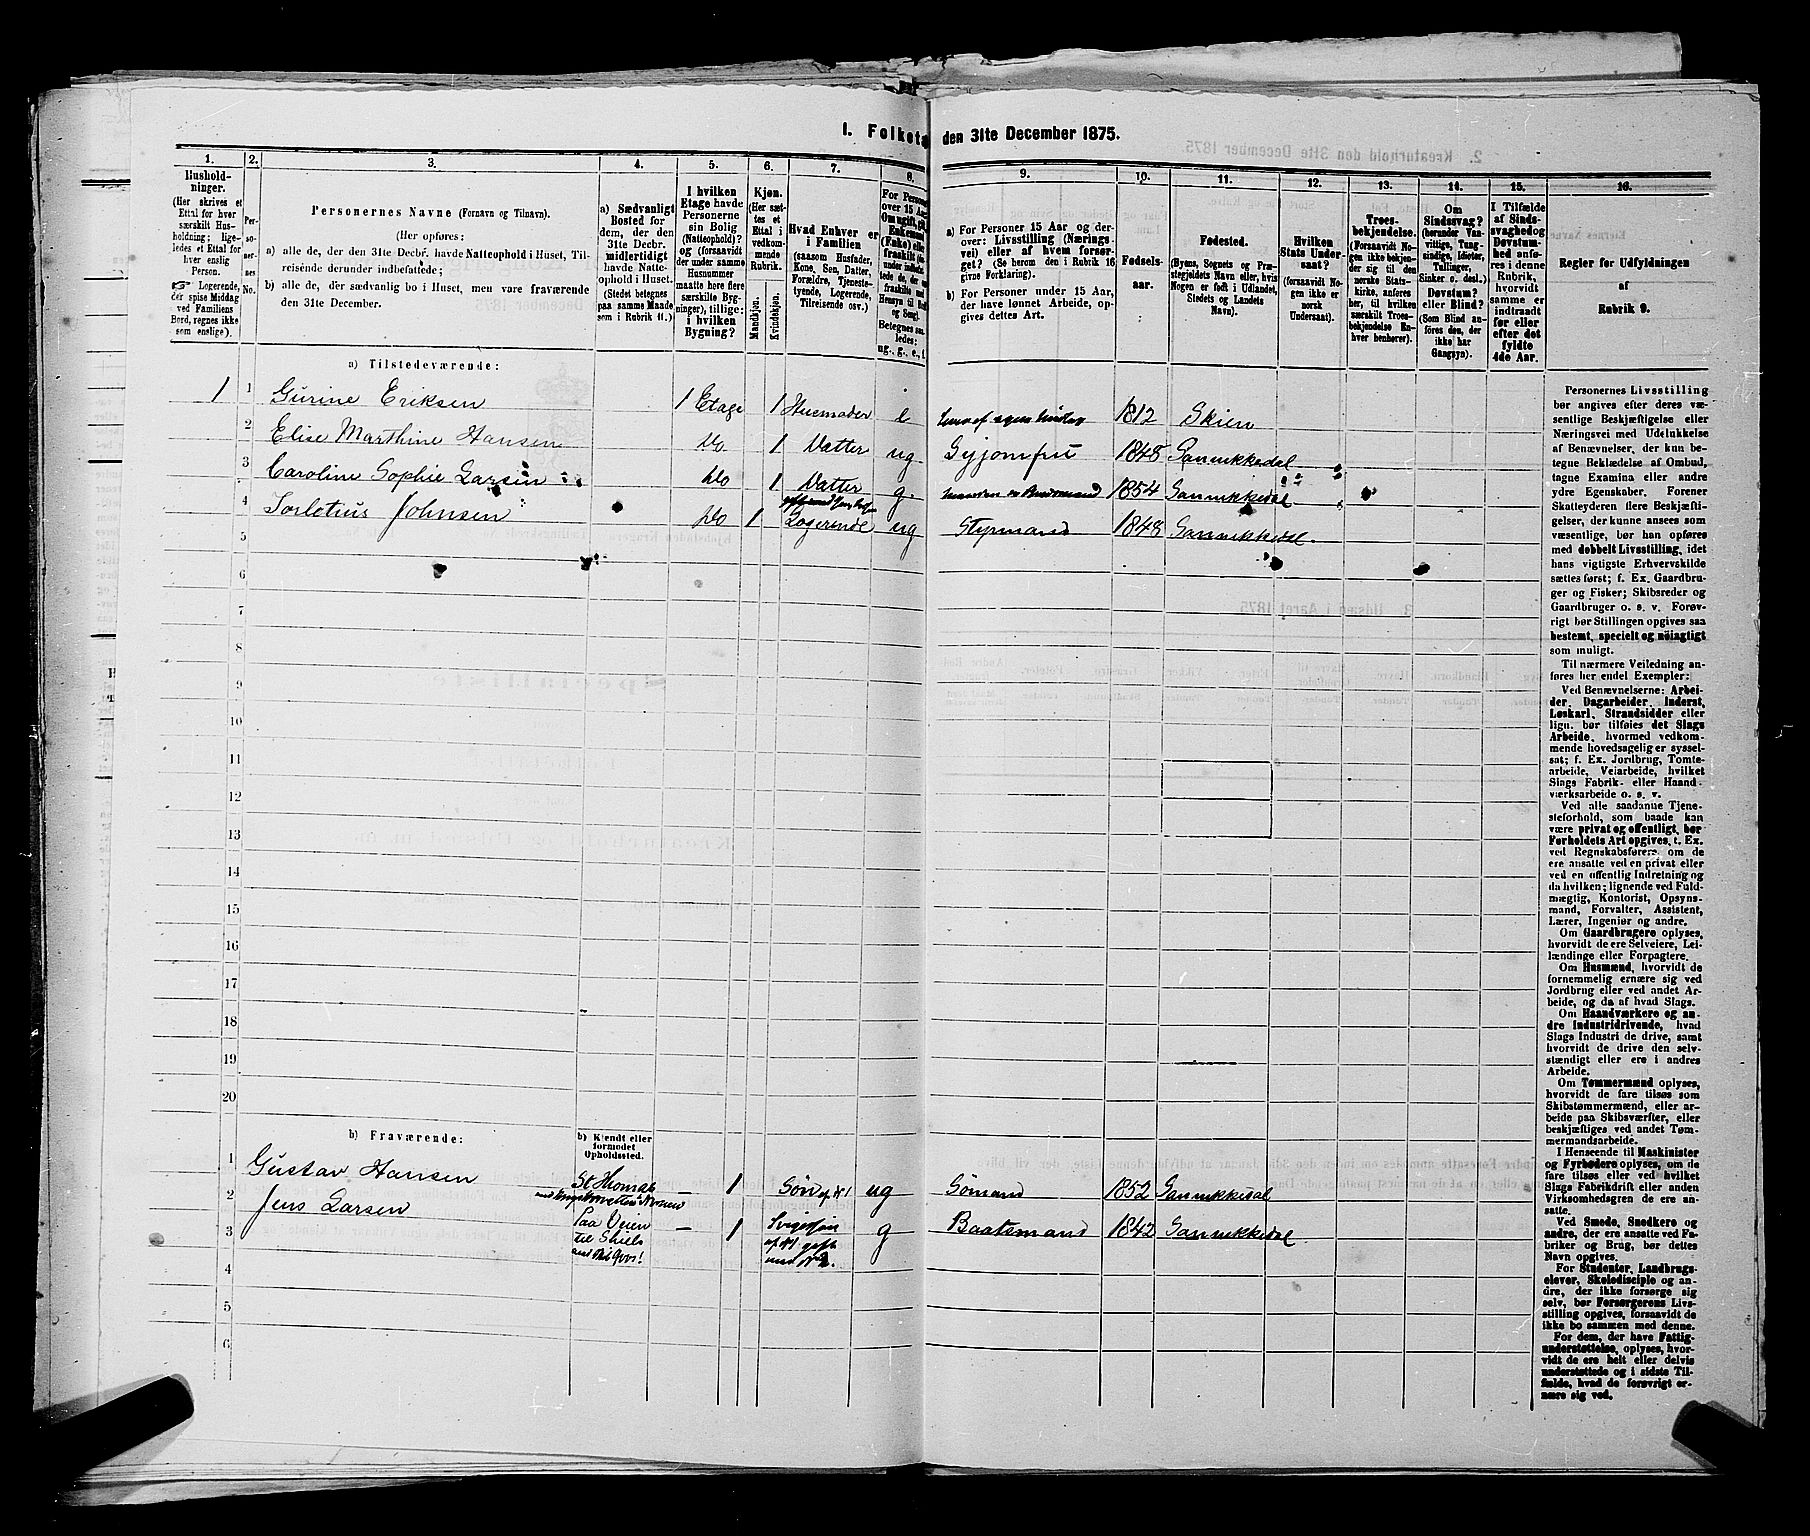 1. Folket
den 31te December 1875.
1.
Hushold-
ninger.
(Her skrives et
Ettal for hver
særskilt Hus-
holdning; lige-
ledes et Ettal for
hver enslig
Person.
Logerende,
der spise Middag
ved Familiens
Bord, regnes ikke
som enslige).
2.
Per-
so-
ner-
nes
No.
3.
Personernes Navne (Fornavn og Tilnavn).
(Her opføres:
a) alle de, der den 31te Decbr. havde Natteophold i Huset, Til-
reisende derunder indbefattede;
b) alle de, der sædvanlig bo i Huset, men vare fraværende
den 31te December.
4.
a) Sædvanligt
Bosted for
dem, der den
31te Decbr.
midlertidigt
havde Natte-
ophold i Huset.
(Stedet betegnes
paa samme Maade
som i Rubrik 11.)
5.
I hvilken
Etage havde
Personerne
sin Bolig
(Natteophold)?
og (forsaavidt
der under samme
Husnummer
maatte høre flere
særskilte Byg-
ninger), tillige:
i hvilken
Bygning?
6.
Kjøn.
(Her sæt-
tes et
Ettal i
vedkom-
mende
Rubrik.
Mandkjøn.
Kvindekjøn.
7.
Hvad Enhver er
i Familien
(saasom Husfader,
Kone, Søn, Datter,
Forældre, Tjeneste-
tyende, Logerende,
Tilreisende osv.)
8.
For Persone
over 15 Aar
Om ugift, gi
Enkeman
(Enke) elle
fraskilt
og Seng).
Betegnes saa-
ledes:
ug., g., e., f.
9.
a) For Personer 15 Aar og der-
over: Livsstilling (Nærings-
vei) eller af hvem forsør-
get? (Se herom den i Rubrik 16
givne Forklaring).
b) For Personer under 15 Aar,
der have lønnet Arbeide, op-
gives dettes Art.
10.
Fødsels-
aar.
11.
Fødested.
(Byens, Sognets og Præ-
stegjeldets Navn eller, hvis
Nogen er født i Udlandet,
Stedets og Landets
Navn).
12.
Hvilken
Stats Under-
saat?
(forsaavidt No-
gen ikke er
norsk
Undersaat).
13.
Troes-
bekjendelse.
(Forsaavidt No-
gen ikke bekjen-
der sig til den
norske Stats-
kirke, anføres
her, til hvilken
særskilt Troes-
bekjendelse En-
hver benhører).
14.
Om
Sindssvag?
(herunder Van-
vittige, Tung-
sindige, Idioter,
Tullinger,
Sinker o. desl.)
Døvstum?
eller Blind?
(Som Blind an-
føres den, der
ikke har
Gangsyn).
15.
I Tilfælde
af Sinds-
svaghed og
Døvstum-
hed anfø-
res i denne
Rubrik,
hvorvidt
samme er
indtraadt
før eller
efter det
fyldte
4de Aar.
16.
Regler for Udfyldningen
af
Rubrik 9.
a) Tilstedeværende:
1 1 Gurine Eriksen 1 Etage 1 Husmoder e 1812 Skien
2 Elise Marthine Hansen Do 1 Datter ug Syjomfru 1848 Sannikkedal
3 Caroline Sophie Larsen Do 1 Datter g. 1854 Sannikkedal
4 Johnsen Do 1 Logerende ug Styrmand 1848 Sannikkedal.
5
6
7
8
9
10
11
12
13
14
15
16
17
18
19
20
b) Fraværende:
b) Kjendt eller
formodet
Opholdssted.
1 Gustav Hansen St Thomas – 1 Søn af No 1 ug Sømand 1852 Sannikkedal
2 Jens Larsen Paa Veien – 1 g Baatsmand 1842 Sannikkedal.
3 til Shiels af No 1 gift
4
5
6
Personernes Livsstilling
bør angives efter deres væ-
sentlige Beskjæftigelse eller
Næringsvei med Udelukkelse
af Benævnelser, der kun be-
tegne Beklædelse af Ombud,
tagne Examina eller andre
ydre Egenskaber. Forener
Skatteyderen flere Beskjæfti-
gelser, der kunne ansees som
væsentlige, bør han opføres
med dobbelt Livsstilling, idet
hans vigtigste Erhvervskilde
sættes først; f. Ex. Gaardbru-
ger og Fisker; Skibsreder og
Gaardbruger o. s. v. Forøv-
rigt bør Stillingen opgives saa
bestemt, specielt og nøiagtigt
som muligt.
Til nærmere Veiledning an-
føres her endel Exempler:
Ved Benævnelserne: Arbei-
der, Dagarbeider, Inderst,
Løskarl, Strandsidder eller
lign. bør tilføies det Slags
Arbeide, hvormed vedkom-
mende hovedsagelig er syssel-
sat; f. Ex. Jordbrug, Tomte-
arbeide, Veiarbeide, hvilket
Slags Fabrik- eller Haand-
værksarbeide o. s. v.
Ved alle saadanne Tjene-
steforhold, som baade kan
være privat og offentligt, bør
Forholdets Art opgives, t. Ex.
ved Regnskabsførere om de
ere ansatte ved en privat eller
ved en offentlig Indretning og
da hvilken; lignende ved Fuld-
mægtig, Kontorist, Opsyns-
mand, Forvalter, Assistent,
Lærer, Ingeniør og andre.
Om Gaardbrugere oplyses,
hvorvidt de ere Selveiere, Lei-
lændinge eller Forpagtere.
Om Husmænd, hvorvidt de
fornemmelig ernære sig ved
Jordbrug eller ved andet Ar-
beide, og da af hvad Slags.
Om Haandværkere og an-
dre Industridrivende, hvad
Slags Industri de drive, samt
hvorvidt de drive den selv-
stændigt eller ere i andres
Arbeide.
Om Tømmermænd oplyses,
hvorvidt de fare tilsøs som
Skibstømmermænd, eller ar-
beide paa Skibsværfter, eller
beskjæftiges ved andet Tøm-
mermandsarbeide.
I Henseende til Maskinister
og Fyrbødere oplyses, om de
fare tilsøs eller ved hvilket
Slags Fabrikdrift eller anden
Virksomhedsgren de ere an-
satte.
Ved Smede, Snedkere og
andre, der ere ansatte ved Fa-
briker og Brug, bør dettes
Navn opgives.
For Studenter, Landbrugs-
elever, Skoledisciple og an-
dre, der ikke forsørge sig
selv, bør Forsørgerens Livs-
stilling opgives, forsaavidt de
ikke bo sammen med denne.
For dem, der have Fattig-
understøttelse, oplyses, hvor-
vidt de ere helt eller delvis
understøttede og i sidste Til-
fælde, hvad de forøvrigt er-
nære sig ved.